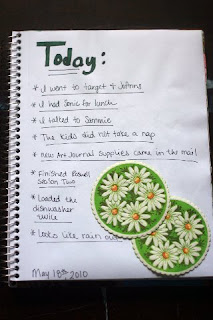 Today:
* I went to target & Johns
* I had Sonic for lunch
* I talked to Sammie
* The kids did not take a nap
* new Art Journal Supplies came in the mail
* Finished
Season Two
* Loaded the
dishwasher
twice
* Looks like rain out
May 18th, 2010